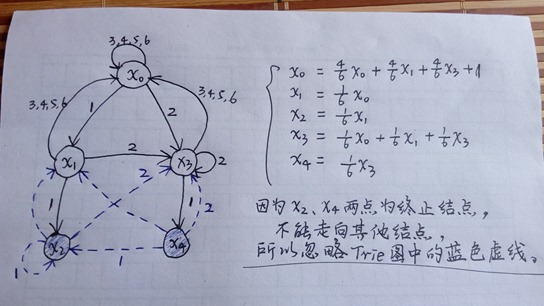 3,4,5,6
x₀
3,4,5,6
1
2
3,4,5,6
x₁
2
x₃
2
1
2
1
2
x₂
x₄
1
1
x₀ = 4/6 x₀ + 4/6 x₁ + 4/6 x₃ + 1
x₁ = 1/6 x₀
x₂ = 1/6 x₁
x₃ = 1/6 x₀ + 1/6 x₁ + 1/6 x₃
x₄ = 1/6 x₃
因为x₂、x₄两点为终止结点,
不能走向其他结点,
所以忽略Trie图中的蓝色虚线。